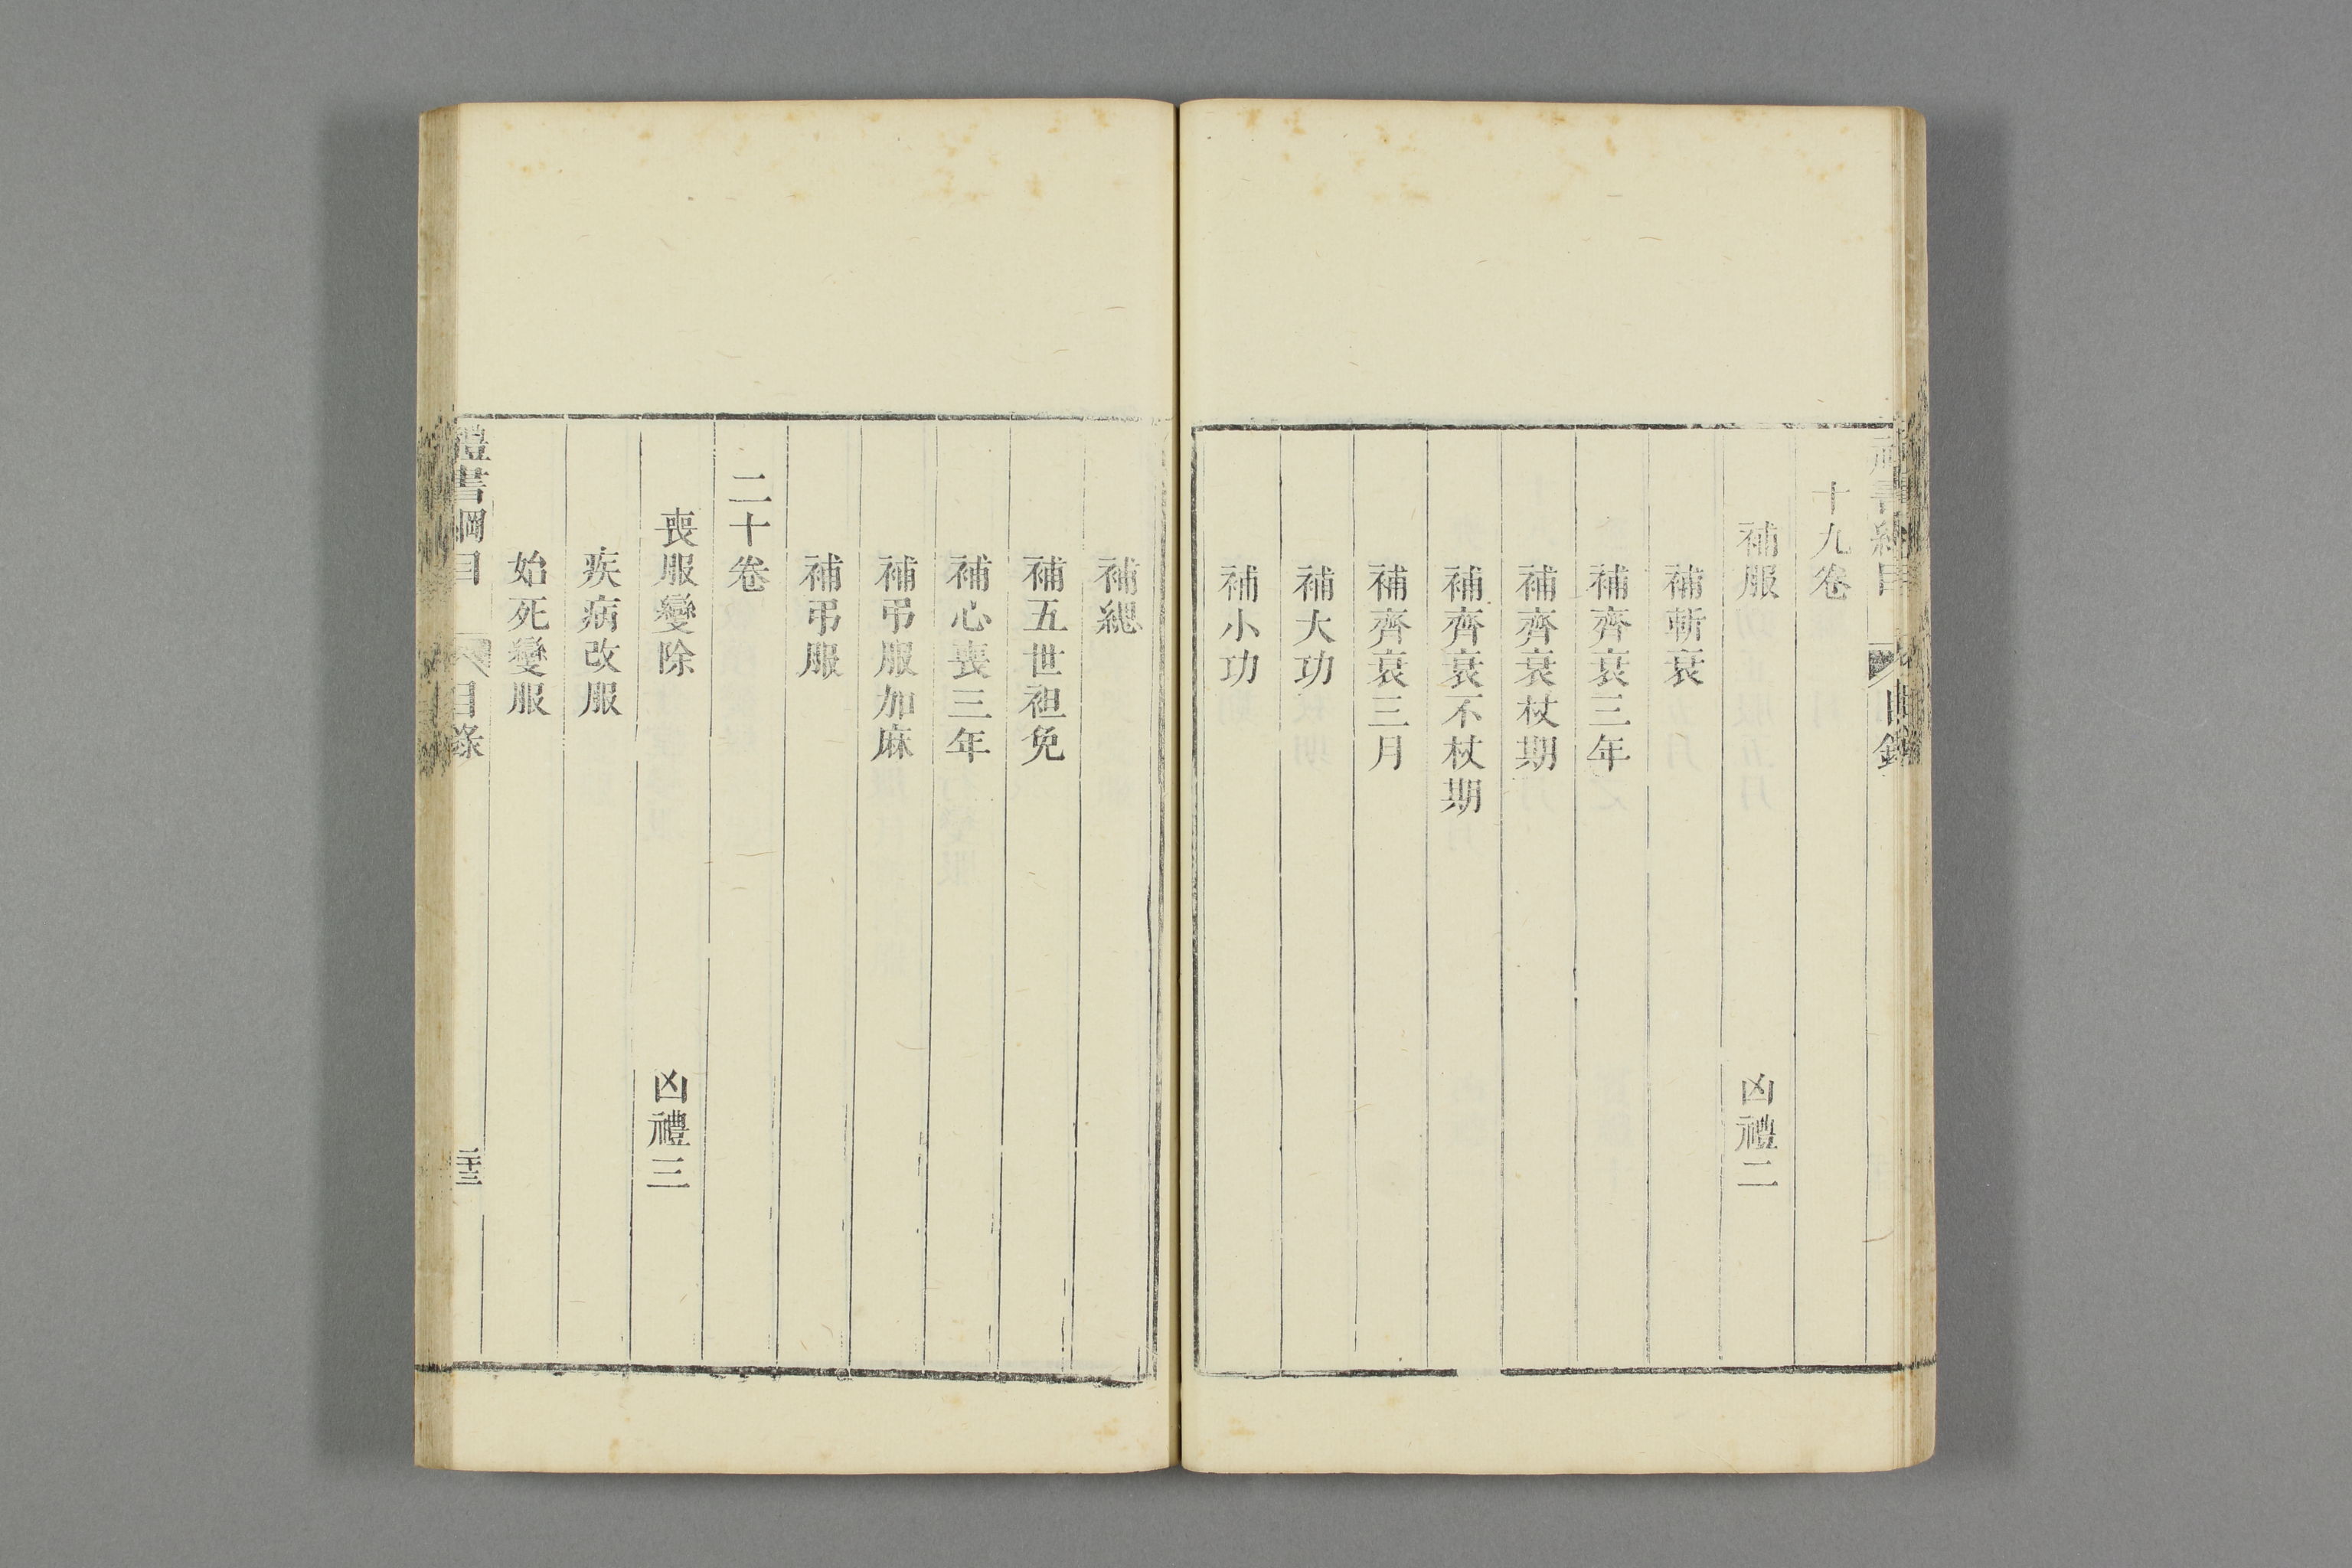 十九卷
補服 凶禮二
補斬衰
補齊衰三年
補齊衰杖期
補齊衰不杖期
補齊衰三月
補大功
補小功
補緦
補五世袒免
補心喪三年
補弔服加麻
補弔服
二十卷
喪服變除 凶禮三
疾病改服
始死變服
禮書綱目 目錄 二十三